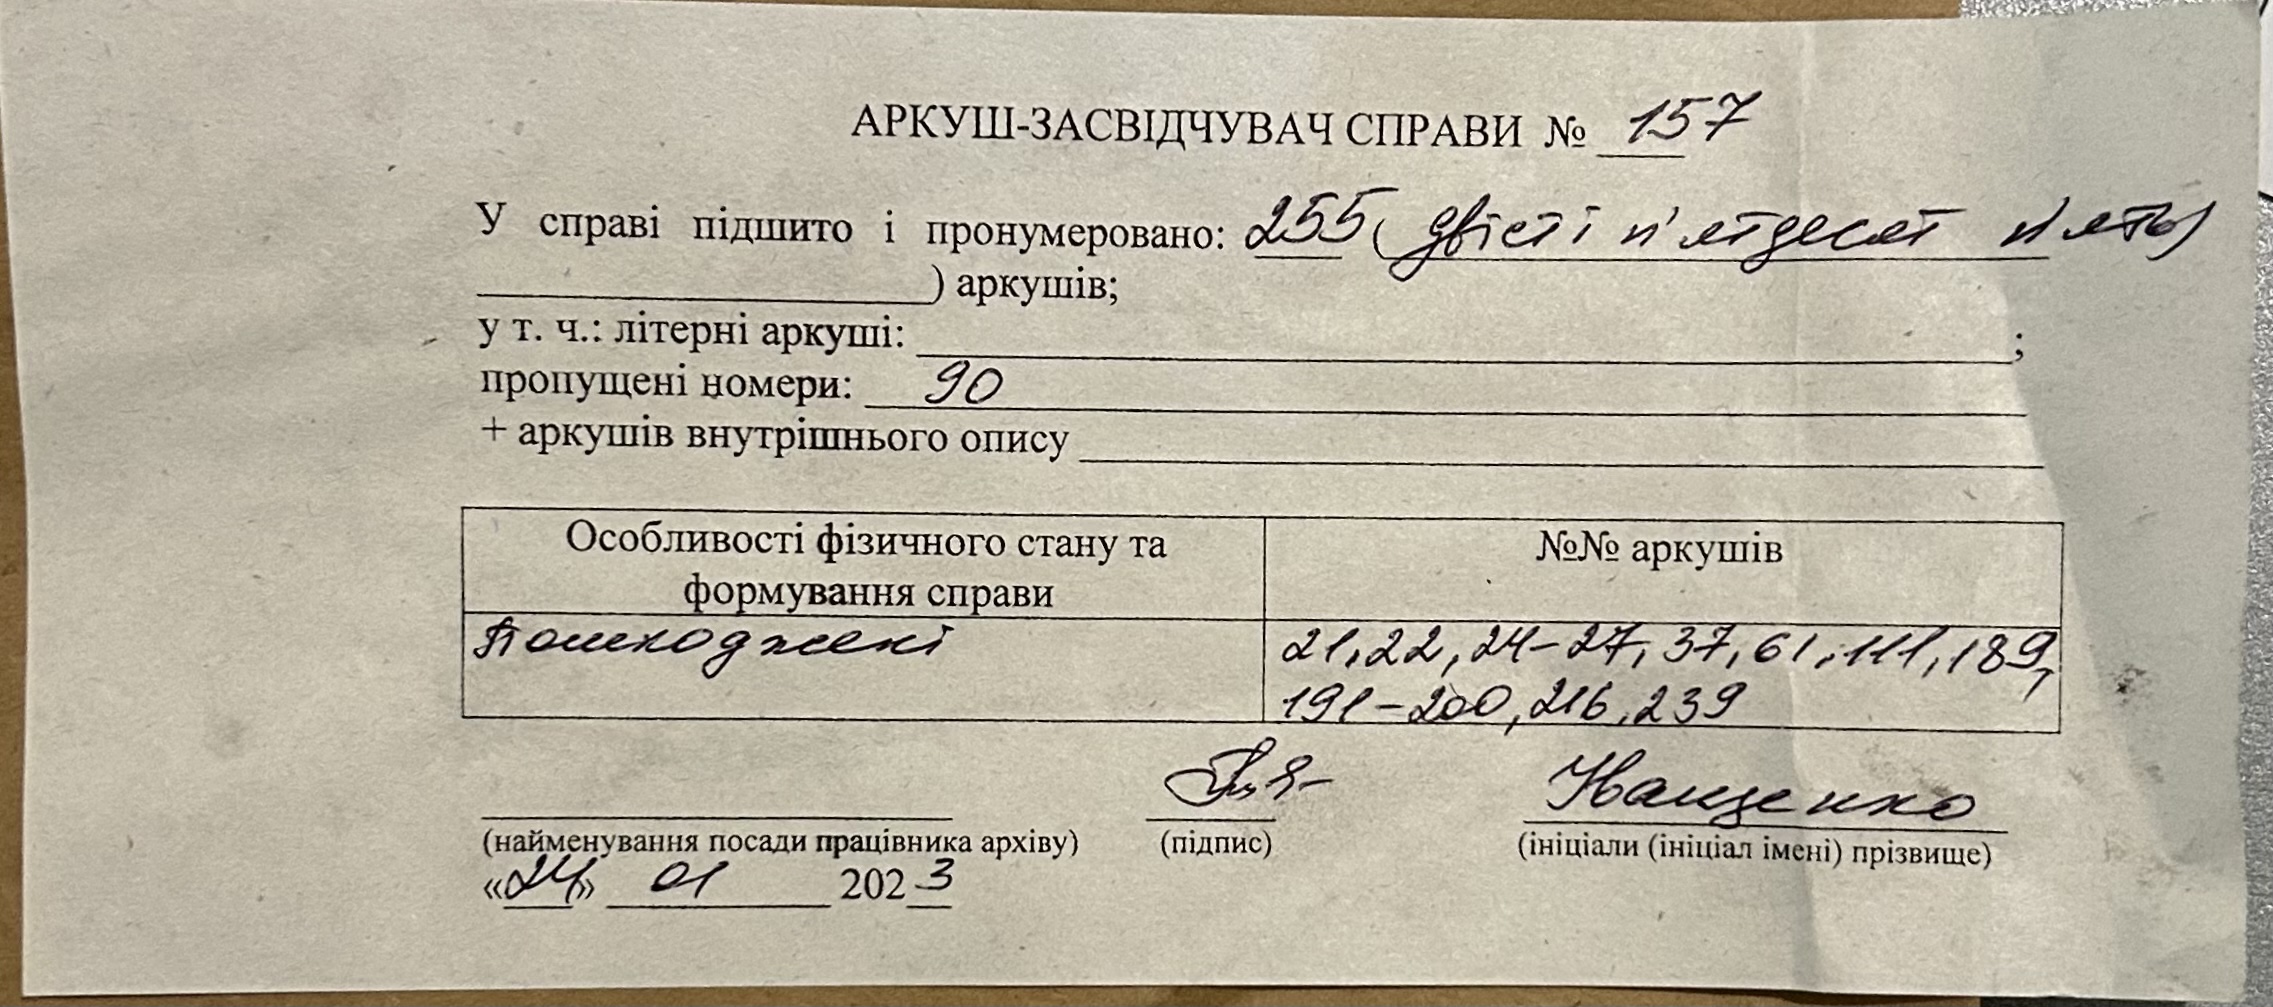 АРКУШ-ЗАСВІДЧУВАЧ СПРАВИ № 157
У справі підшито і пронумеровано: 255 (двісті п'ятдесят п'ять)
) аркушів;
у т. ч.: літерні аркуші: ;
пропущені номери: 90
+ аркушів внутрішнього опису
Особливості фізичного стану та формування справи
№№ аркушів
Пошкоджені
21, 22, 24-27, 37, 61, 111, 189,
191-200, 216, 239
(найменування посади працівника архіву) (підпис) (ініціали (ініціал імені) прізвище)
«24» 01 2023